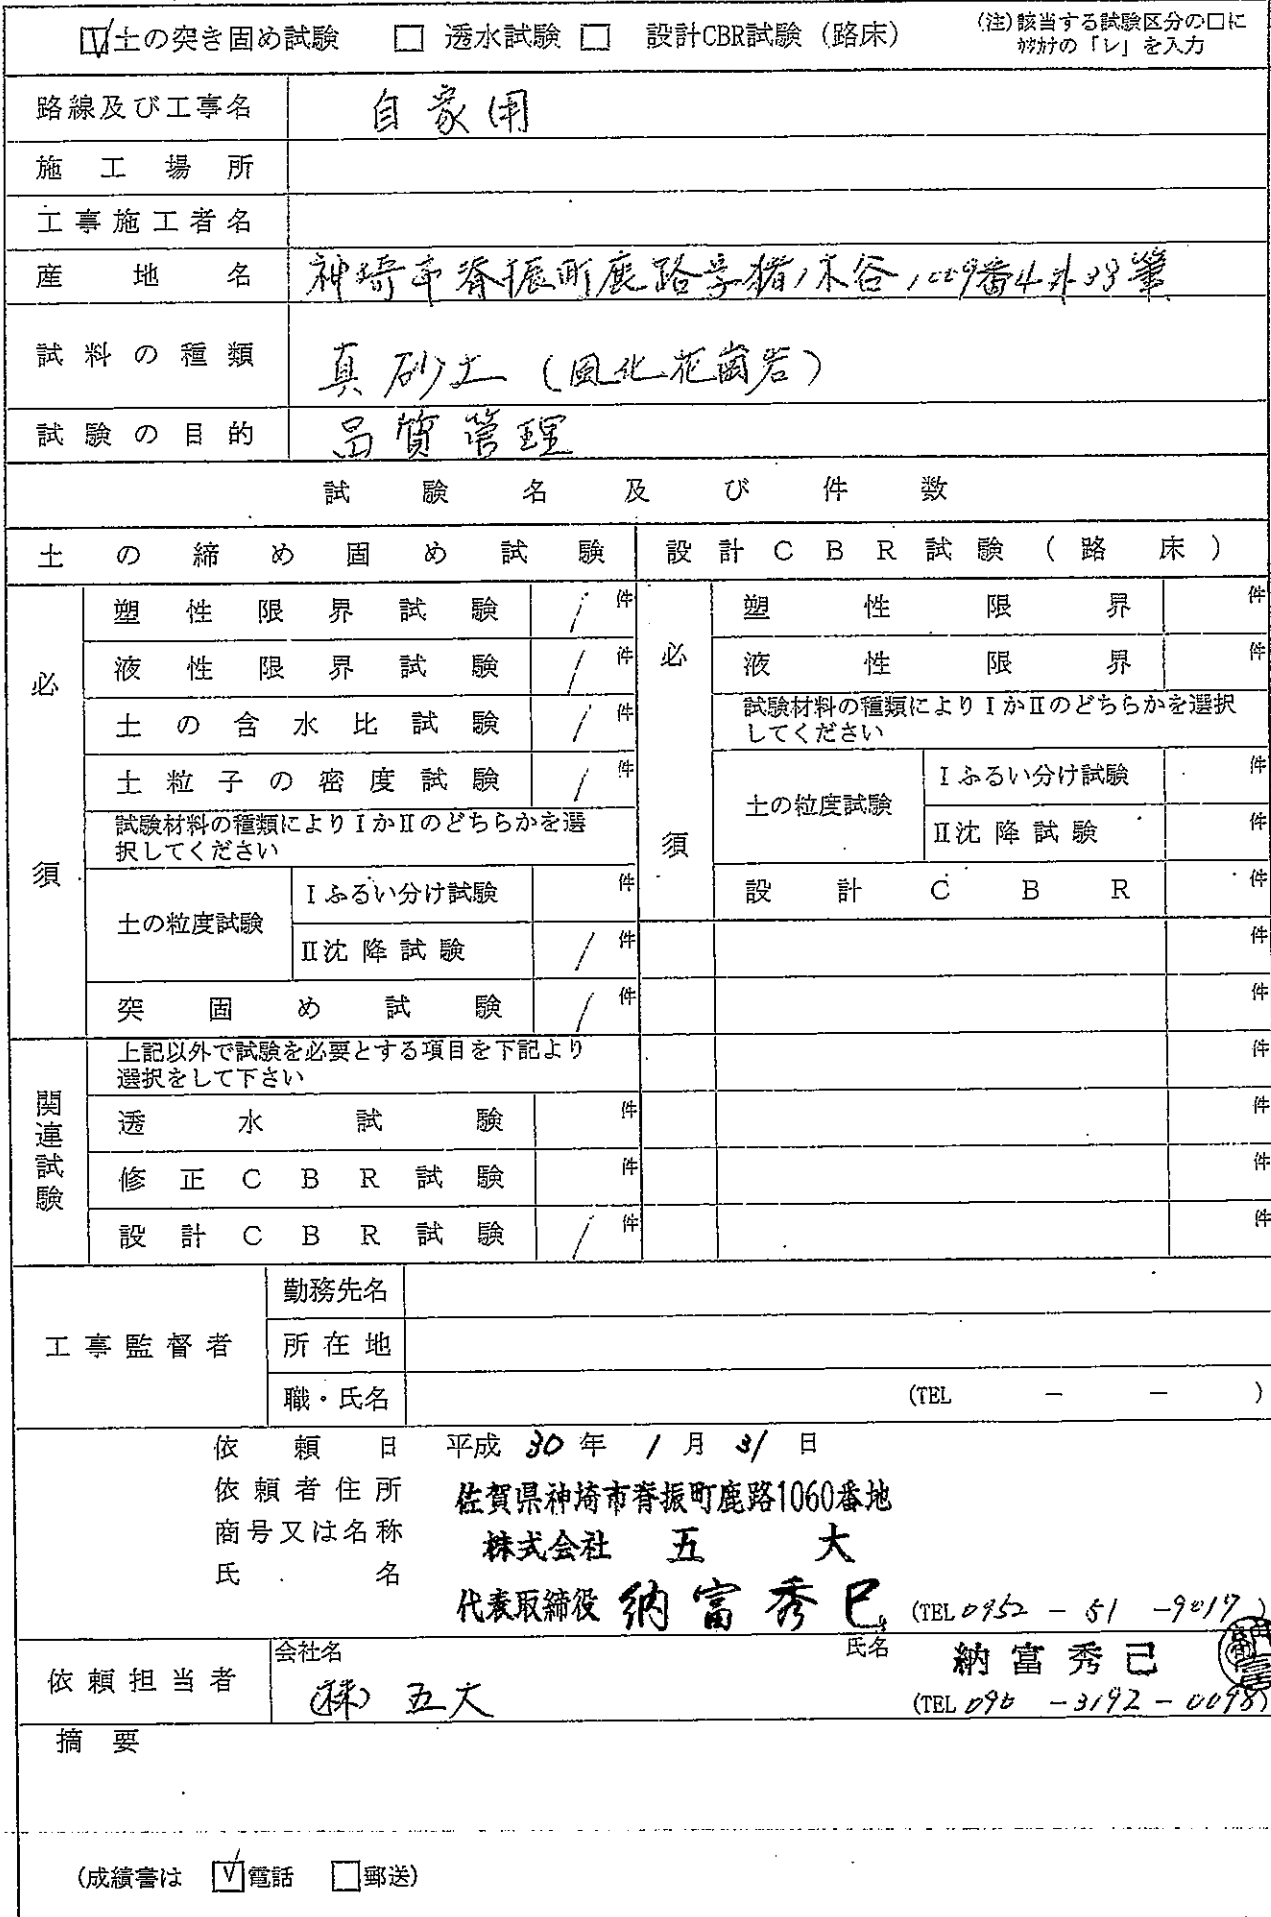 ☑土の突き固め試験 □ 透水試験 □ 設計CBR試験（路床）
(注)該当する試験区分の□に
ｶﾀｶﾅの「レ」を入力
路線及び工事名 自家用
施工場所
工事施工者名
産地名 神埼市脊振町鹿路字猪ノ木谷 番4外33筆
試料の種類 真砂土（風化花崗岩）
試験の目的 品質管理
試験名及び件数
土の締め固め試験 設計CBR試験（路床）
必須
塑性限界試験 1 件
液性限界試験 1 件
土の含水比試験 1 件
土粒子の密度試験 1 件
試験材料の種類によりⅠかⅡのどちらかを選
択してください
土の粒度試験
Ⅰふるい分け試験 件
Ⅱ沈降試験 1 件
突固め試験 1 件
関連試験
上記以外で試験を必要とする項目を下記より
選択をして下さい
透水試験 件
修正CBR試験 件
設計CBR試験 1 件
必須
塑性限界 件
液性限界 件
試験材料の種類によりⅠかⅡのどちらかを選択
してください
土の粒度試験
Ⅰふるい分け試験 件
Ⅱ沈降試験 件
設計CBR 件
件
件
件
件
件
件
工事監督者
勤務先名
所在地
職・氏名 (TEL － － )
依頼日 平成30年1月31日
依頼者住所 佐賀県神埼市脊振町鹿路1060番地
商号又は名称 株式会社 五大
氏名 代表取締役 納富秀巳 (TEL 0952 － 51 －9017)
依頼担当者
会社名 (株) 五大
氏名 納富秀己
(TEL 090 －3192－0098)
摘要
(成績書は ☑電話 □郵送)